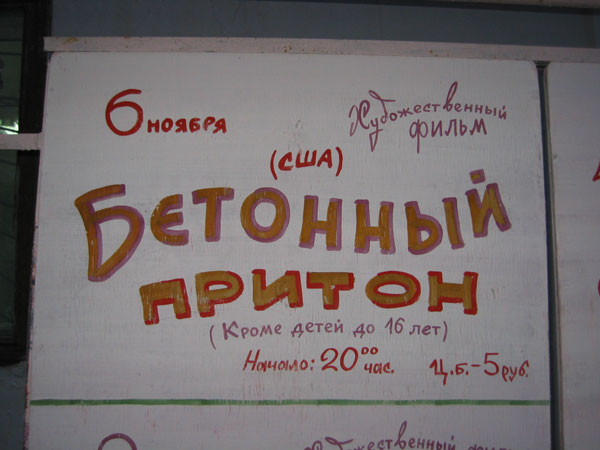 6 НОЯБРЯ
Художественный
ФИЛЬМ
(США)
БЕТОННЫЙ
ПРИТОН
(Кроме детей до 16 лет)
Начало: 20⁰⁰ час. Ц.Б.-5 руб.
Художественный